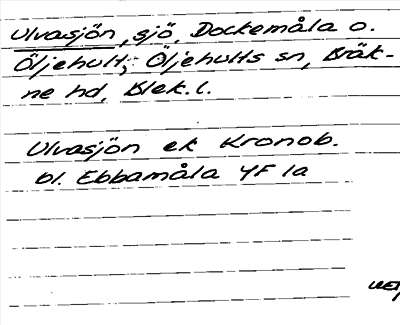 Ulvasjön, sjö, Dockemåla o.
Öljehult, Öljehults sn, Bräk-
ne hd, Blek. l.
Ulvasjön ek Kronob.
bl. Ebbamåla 4F 1a